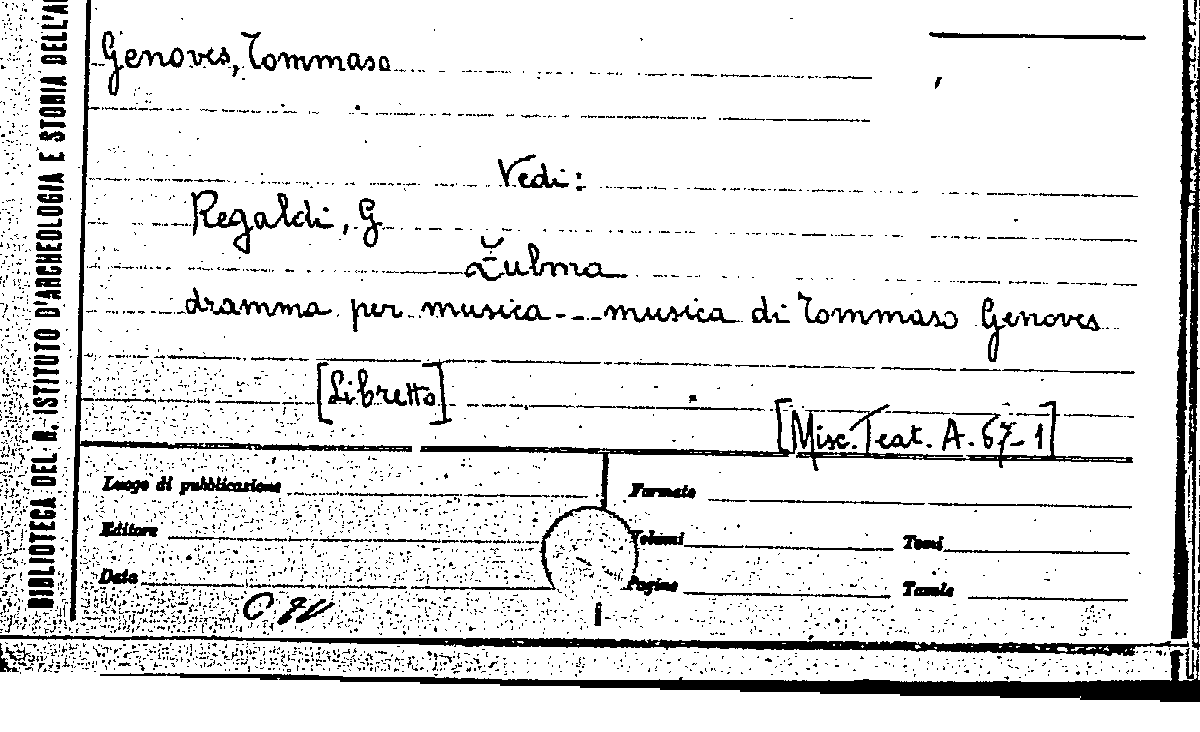 BIBLIOTECA DEL R. ISTITUTO D'ARCHEOLOGIA E STORIA DELL'A
Genoves, Tommaso
Vedi:
Regaldi, G
Žulma
dramma per musica --- musica di Tommaso Genoves
[Libretto]
[Misc. Teat. A. 67-1]
Luogo di pubblicazione
Formato
Editore
Volumi
Tomi
Data
Pagine
Tavole